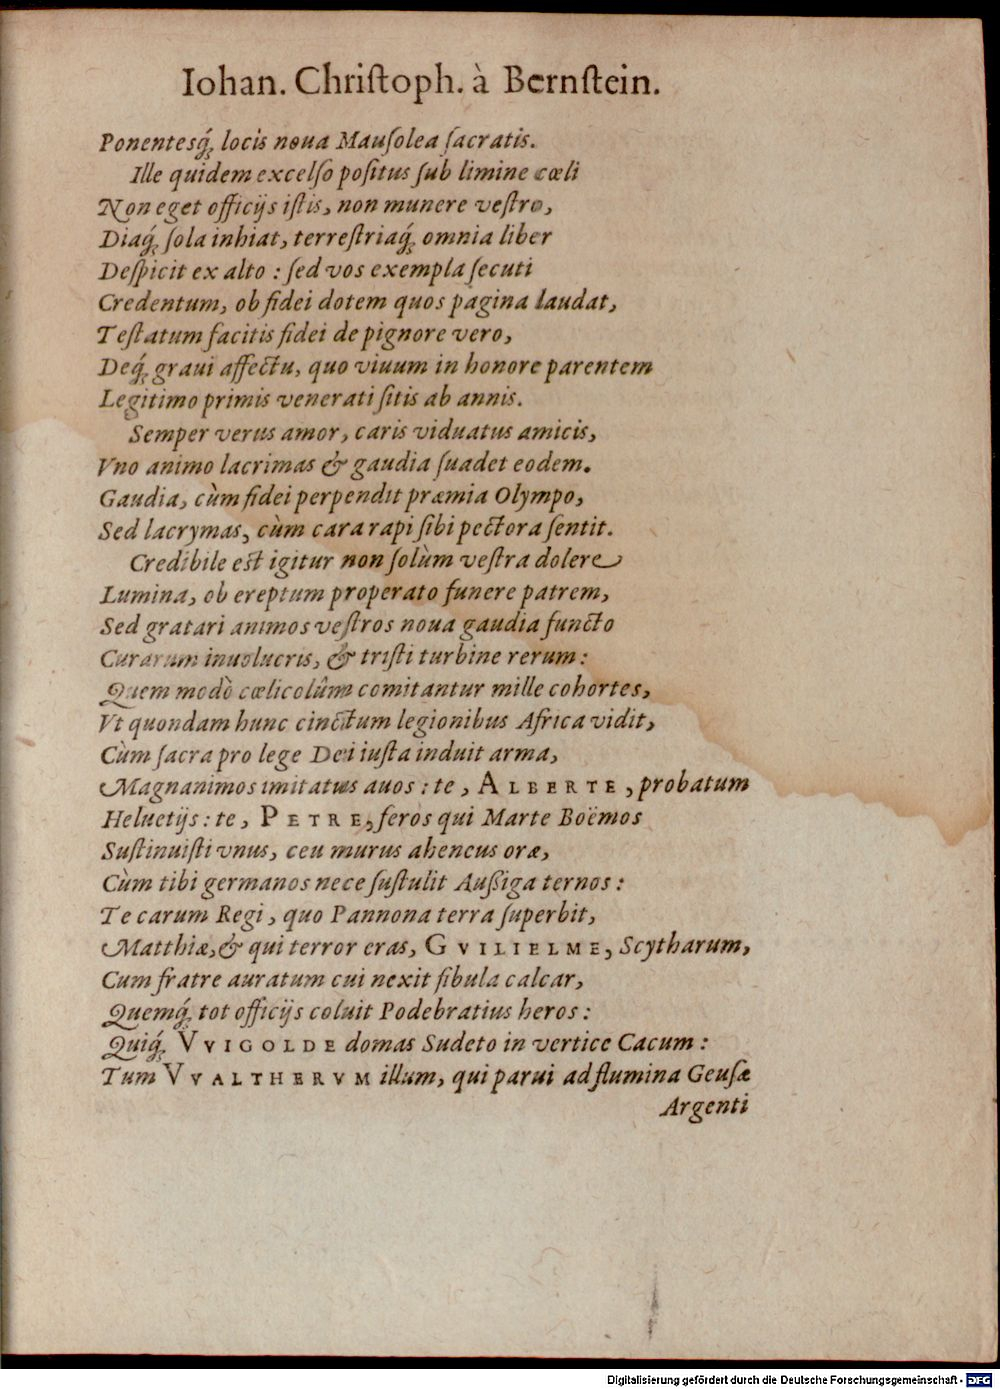 Iohan. Chriſtoph. à Bernſtein.
Ponentesq́ꝫ locis noua Mauſolea ſacratis.
Ille quidem excelſo poſitus ſub limine cœli
Non eget officijs iſtis, non munere veſtro,
Diaq́ꝫ ſola inhiat, terreſtriaq́ꝫ omnia liber
Deſpicit ex alto : ſed vos exempla ſecuti
Credentum, ob fidei dotem quos pagina laudat,
Teſtatum facitis fidei de pignore vero,
Deq́ꝫ graui affectu, quo viuum in honore parentem
Legitimo primis venerati ſitis ab annis.
Semper verus amor, caris viduatus amicis,
Vno animo lacrimas & gaudia ſuadet eodem.
Gaudia, cùm fidei perpendit præmia Olympo,
Sed lacrymas, cùm cara rapi ſibi pectora ſentit.
Credibile eſt igitur non ſolùm veſtra dolere
Lumina, ob ereptum properato funere patrem,
Sed gratari animos veſtros noua gaudia functo
Curarum inuolucris, & triſti turbine rerum:
Quem modò cœlicolûm comitantur mille cohortes,
Vt quondam hunc cinctum legionibus Africa vidit,
Cùm ſacra pro lege Dei iuſta induit arma,
Magnanimos imitatus auos : te, ALBERTE, probatum
Heluetijs : te, PETRE, feros qui Marte Boëmos
Suſtinuiſti vnus, ceu murus aheneus oræ,
Cùm tibi germanos nece ſuſtulit Auſſiga ternos :
Te carum Regi, quo Pannona terra ſuperbit,
Matthiæ, & qui terror eras, GVILIELME, Scytharum,
Cum fratre auratum cui nexit fibula calcar,
Quemq́ꝫ tot officijs coluit Podebratius heros :
Quiq́ꝫ VVIGOLDE domas Sudeto in vertice Cacum :
Tum VVALTHERVM illum, qui parui ad flumina Geuſæ
Argenti
Digitalisierung gefördert durch die Deutsche Forschungsgemeinschaft - DFG